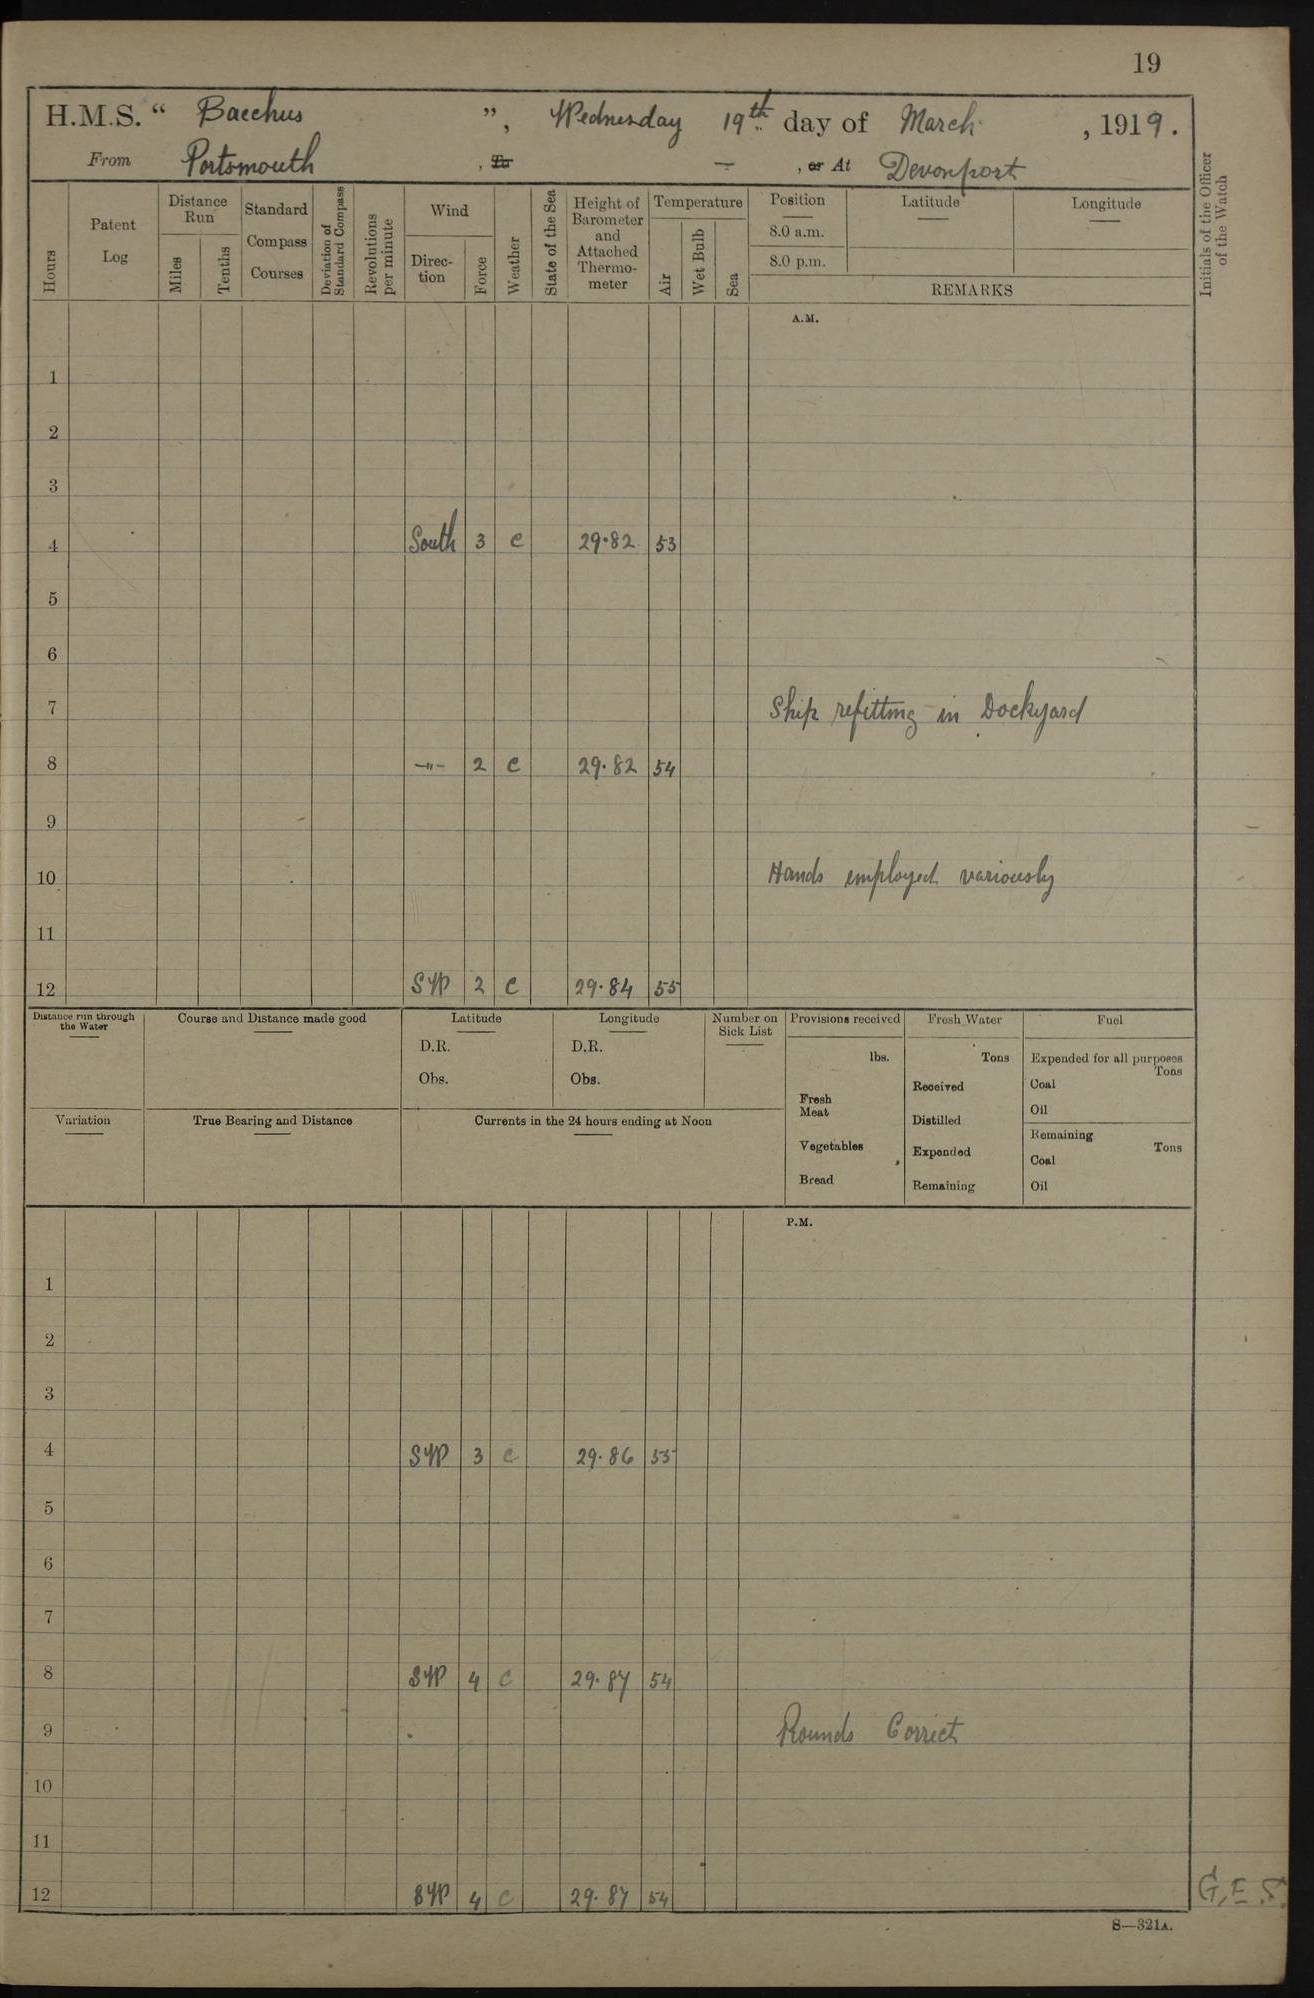 19
H.M.S. “ Bacchus ”, Wednesday 19th day of March , 1919.
From Portsmouth , To — , or At Devonport
Hours
Patent Log
Distance Run
Miles
Tenths
Standard Compass Courses
Deviation of Standard Compass
Revolutions per minute
Wind
Direction
Force
Weather
State of the Sea
Height of Barometer and Attached Thermometer
Temperature
Air
Wet Bulb
Sea
Position
8.0 a.m.
8.0 p.m.
Latitude
Longitude
REMARKS
Initials of the Officer of the Watch
A.M.
1
2
3
4 South 3 c 29.82 53
5
6
7 Ship refitting in Dockyard
8 —"— 2 c 29.82 54
9
10 Hands employed variously
11
12 SW 2 c 29.84 55
Distance run through the Water
Course and Distance made good
Latitude
D.R.
Obs.
Longitude
D.R.
Obs.
Number on Sick List
Provisions received
lbs.
Fresh Meat
Vegetables
Bread
Fresh Water
Tons
Received
Distilled
Expended
Remaining
Fuel
Expended for all purposes
Tons
Coal
Oil
Remaining
Tons
Coal
Oil
Variation
True Bearing and Distance
Currents in the 24 hours ending at Noon
P.M.
1
2
3
4 SW 3 c 29.86 55
5
6
7
8 SW 4 c 29.87 54
9 Rounds Correct
10
11
12 SW 4 c 29.87 54 G.E.S.
S—321A.